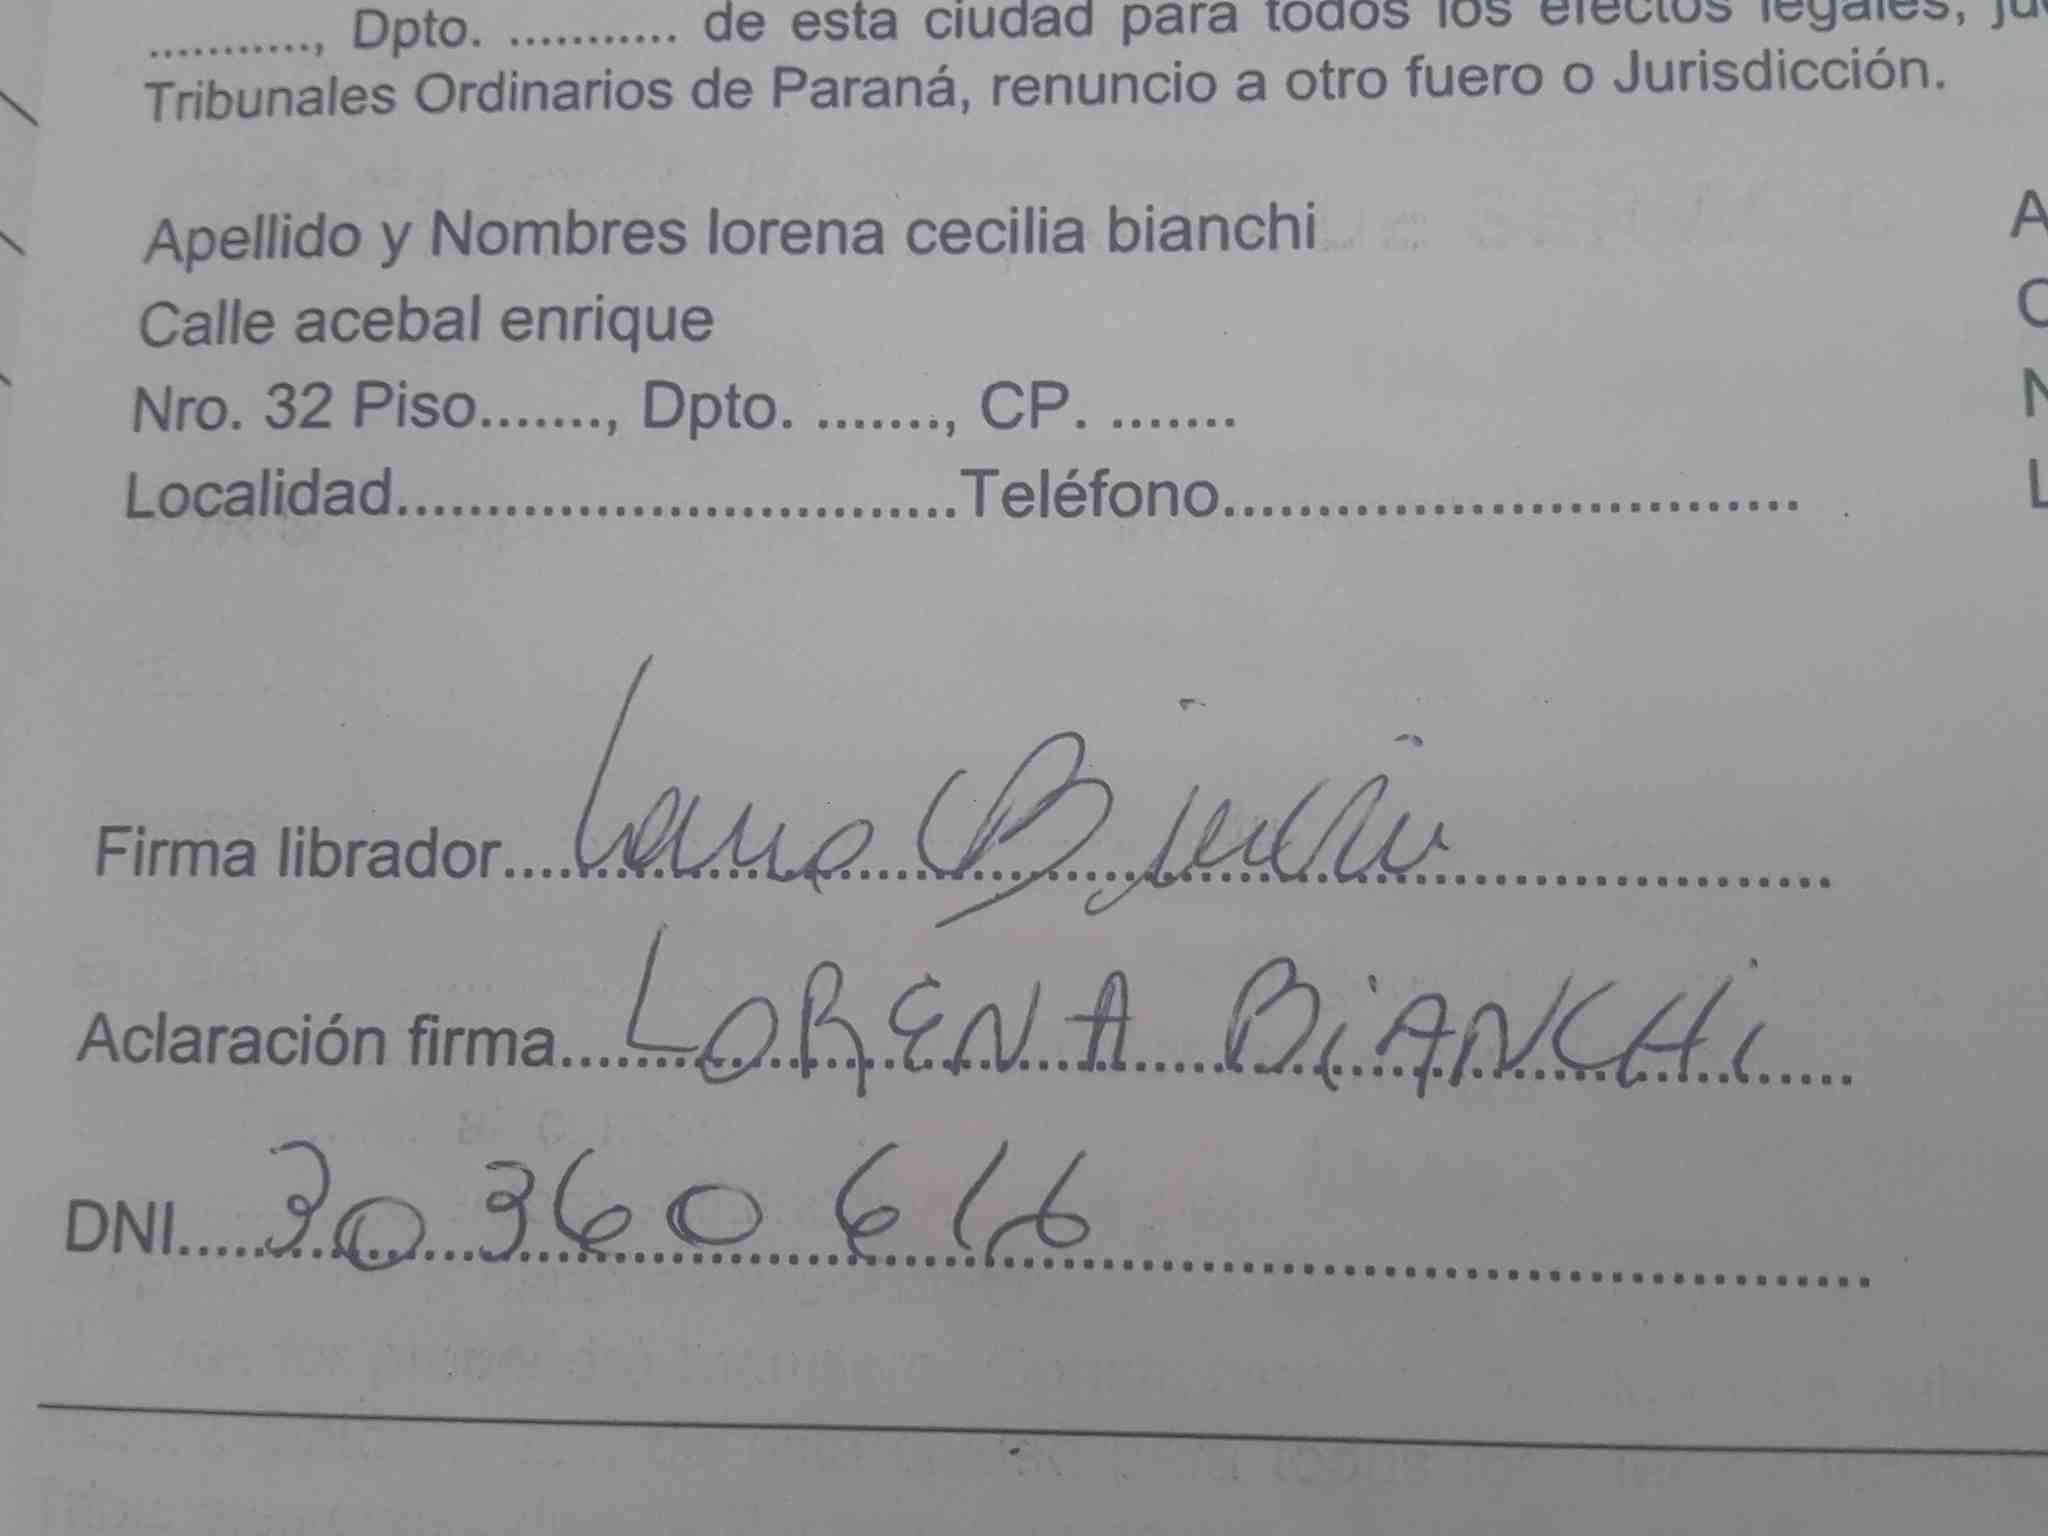 ..........., Dpto. ........... de esta ciudad para todos los efectos legales,
Tribunales Ordinarios de Paraná, renuncio a otro fuero o Jurisdicción.
Apellido y Nombres lorena cecilia bianchi
Calle acebal enrique
Nro. 32 Piso......., Dpto. ......., CP. .......
Localidad...............................Teléfono................................
Firma librador....
Aclaración firma....LORENA BiANCHi.....
DNI.....30 360 616